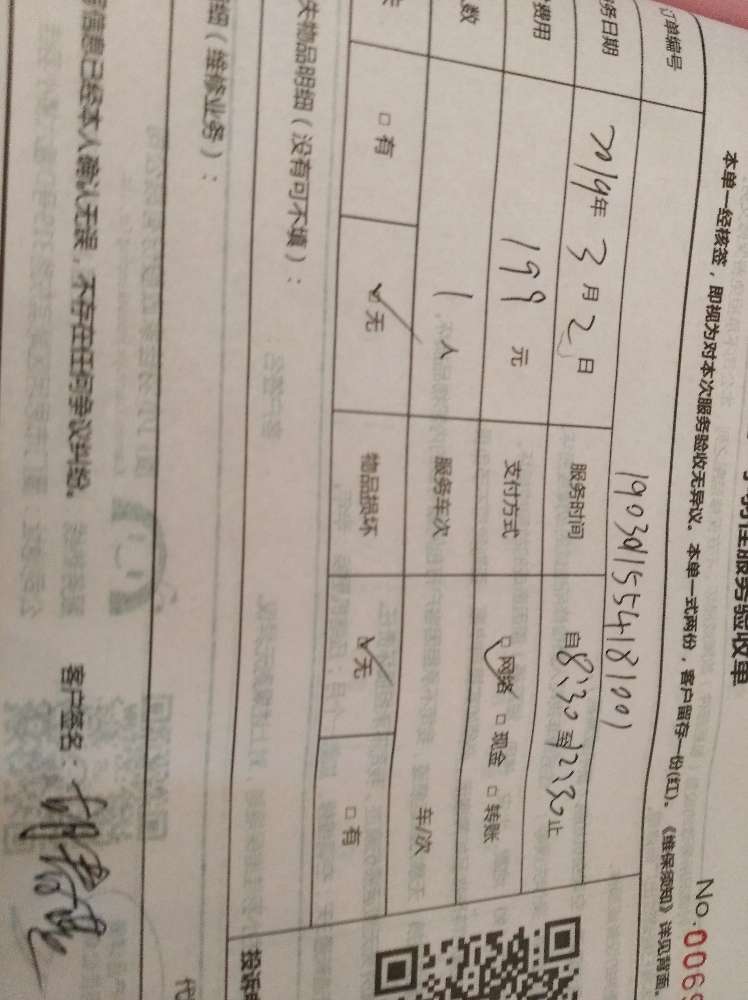 服务验收单
No.006
本单一经核签，即视为对本次服务验收无异议。本单一式两份，客户留存一份(红)。《维保须知》详见背面。
订单编号 1903011554181001
务日期 2019年3月2日 服务时间 自8:30至12:30止
费用 199元 支付方式 网络 现金 转账
数 1人 服务车次 车/次
有 无 物品损坏 无 有
失物品明细（没有可不填）：
细（维修业务）：
投诉
信息已经本人确认无误，不存在任何争议纠纷。 客户签名：
代